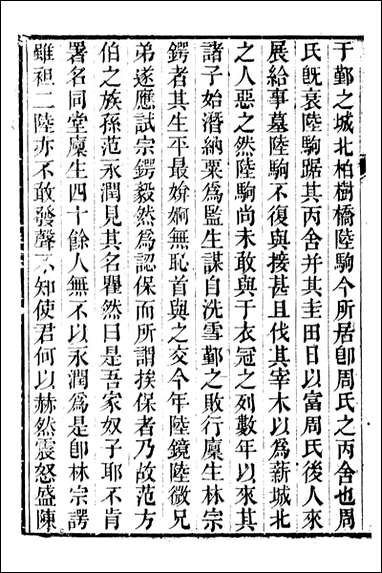 于鄞之城北柏樹橋陸駒今所居卽周氏之丙舍也周
氏旣衰陸駒踞其丙舍并其圭田日以富周氏後人來
展給事墓陸駒不復與接甚且伐其宰木以爲薪城北
之人惡之然陸駒尚未敢與于衣冠之列數年以來其
諸子始潛納粟爲監生謀自洗雪鄞之敗行廩生林宗
鍔者其生平最媕婀無恥首與之交今年陸鏡陸徵兄
弟遂應試宗鍔毅然爲認保而所謂挨保者乃故范方
伯之族孫范永潤見其名瞿然曰是吾家奴子耶不肯
署名同堂廩生四十餘人無不以永潤爲是卽林宗諤
雖袒二陸亦不敢發聲不知使君何以赫然震怒盛陳